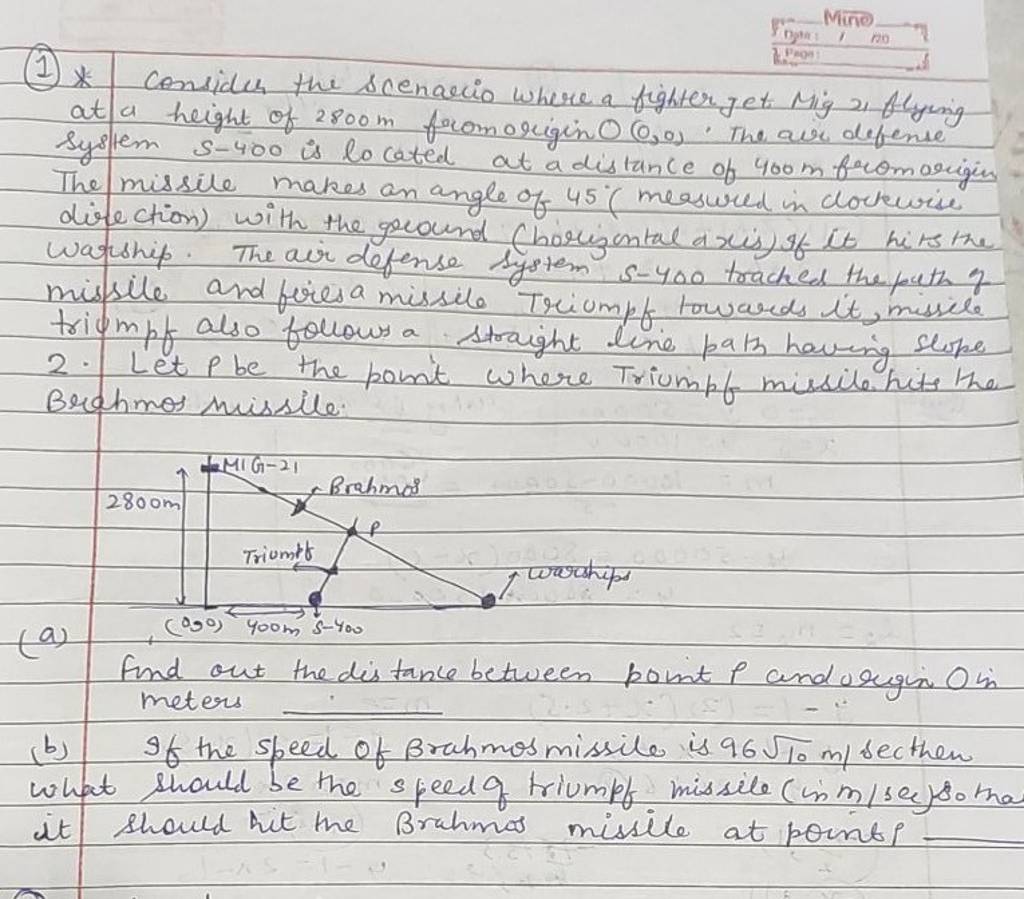 Mine
Date : / /20
Page:
1 * Consider the scenario where a fighter jet Mig 21 flying
at a height of 2800m from origin O (0,0). The air defense
System S-400 is located at a distance of 400m from origin
The missile makes an angle of 45° ( measured in clockwise
direction) with the ground (horizontal axis) if it hits the
warship. The air defense system S-400 tracked the path of
missile and fires a missile Triumpf towards it, missile
triumpf also follows a straight line path having slope
2. Let P be the point where Triumpf missile hits the
Brahmos missile.
MIG-21
Brahmos
2800m
P
Triumpf
warships
(0,0) 400m S-400
(a)
find out the distance between point P and origin O in
meters
(b) If the speed of Brahmos missile is 96√10 m/sec then
what should be the speed of triumpf missile (in m/sec) so tha
it should hit the Brahmos missile at point P